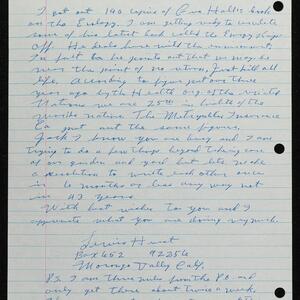 I got out 140 copies of Gus Hall's book
on the Ecology. I am getting ready to
some of his latest book called the Energy Rip
Off. He deals here with the environment.
In fact his points out that we may be
near the point of no return, for all
life. According to figures put out three
years ago by the Health Org of the United
Nations we are 25th in health of the
world's nations. The Metropolitan Insurance
Co. put out the same figures.
Jack I know you are busy and I am
trying to do a few things beyond taking care
of our garden and yard but lets make
a resolution to write each other once
in 6 months or less any way not
in 43 years.
With best wishes to you and I
appreciate what you are doing very much.
Lewis Hurst
Box 452 92256
Morongo Valley Calif.
P.S. I am three miles from the P.O. and
only get there about twice a week.